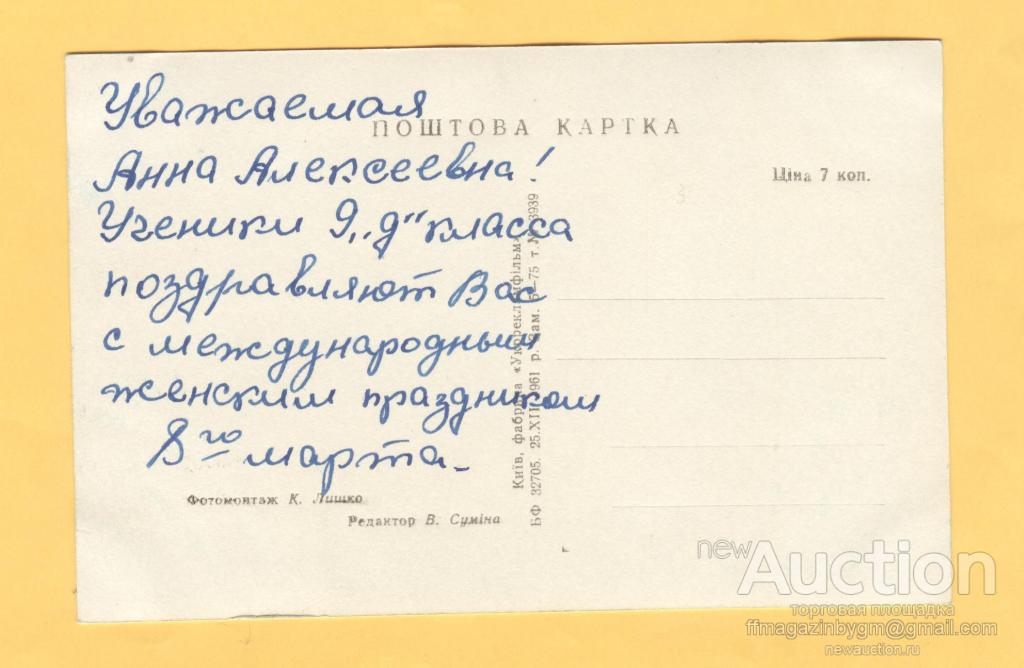 Уважаемая
ПОШТОВА КАРТКА
Анна Алексеевна!
Ціна 7 коп.
Ученики 9 „Д" класса
поздравляют Вас
с международным
женским праздником
8го марта.
Фотомонтаж К. Лишко
Редактор В. Суміна
Київ, фабрика «Укррекламфільм»
БФ 32705. 25.XII 1961 р. Зам. 5—75 т. 3939
newAuction
торговая площадка
ffmagazinbygm@gmail.com
newauction.ru